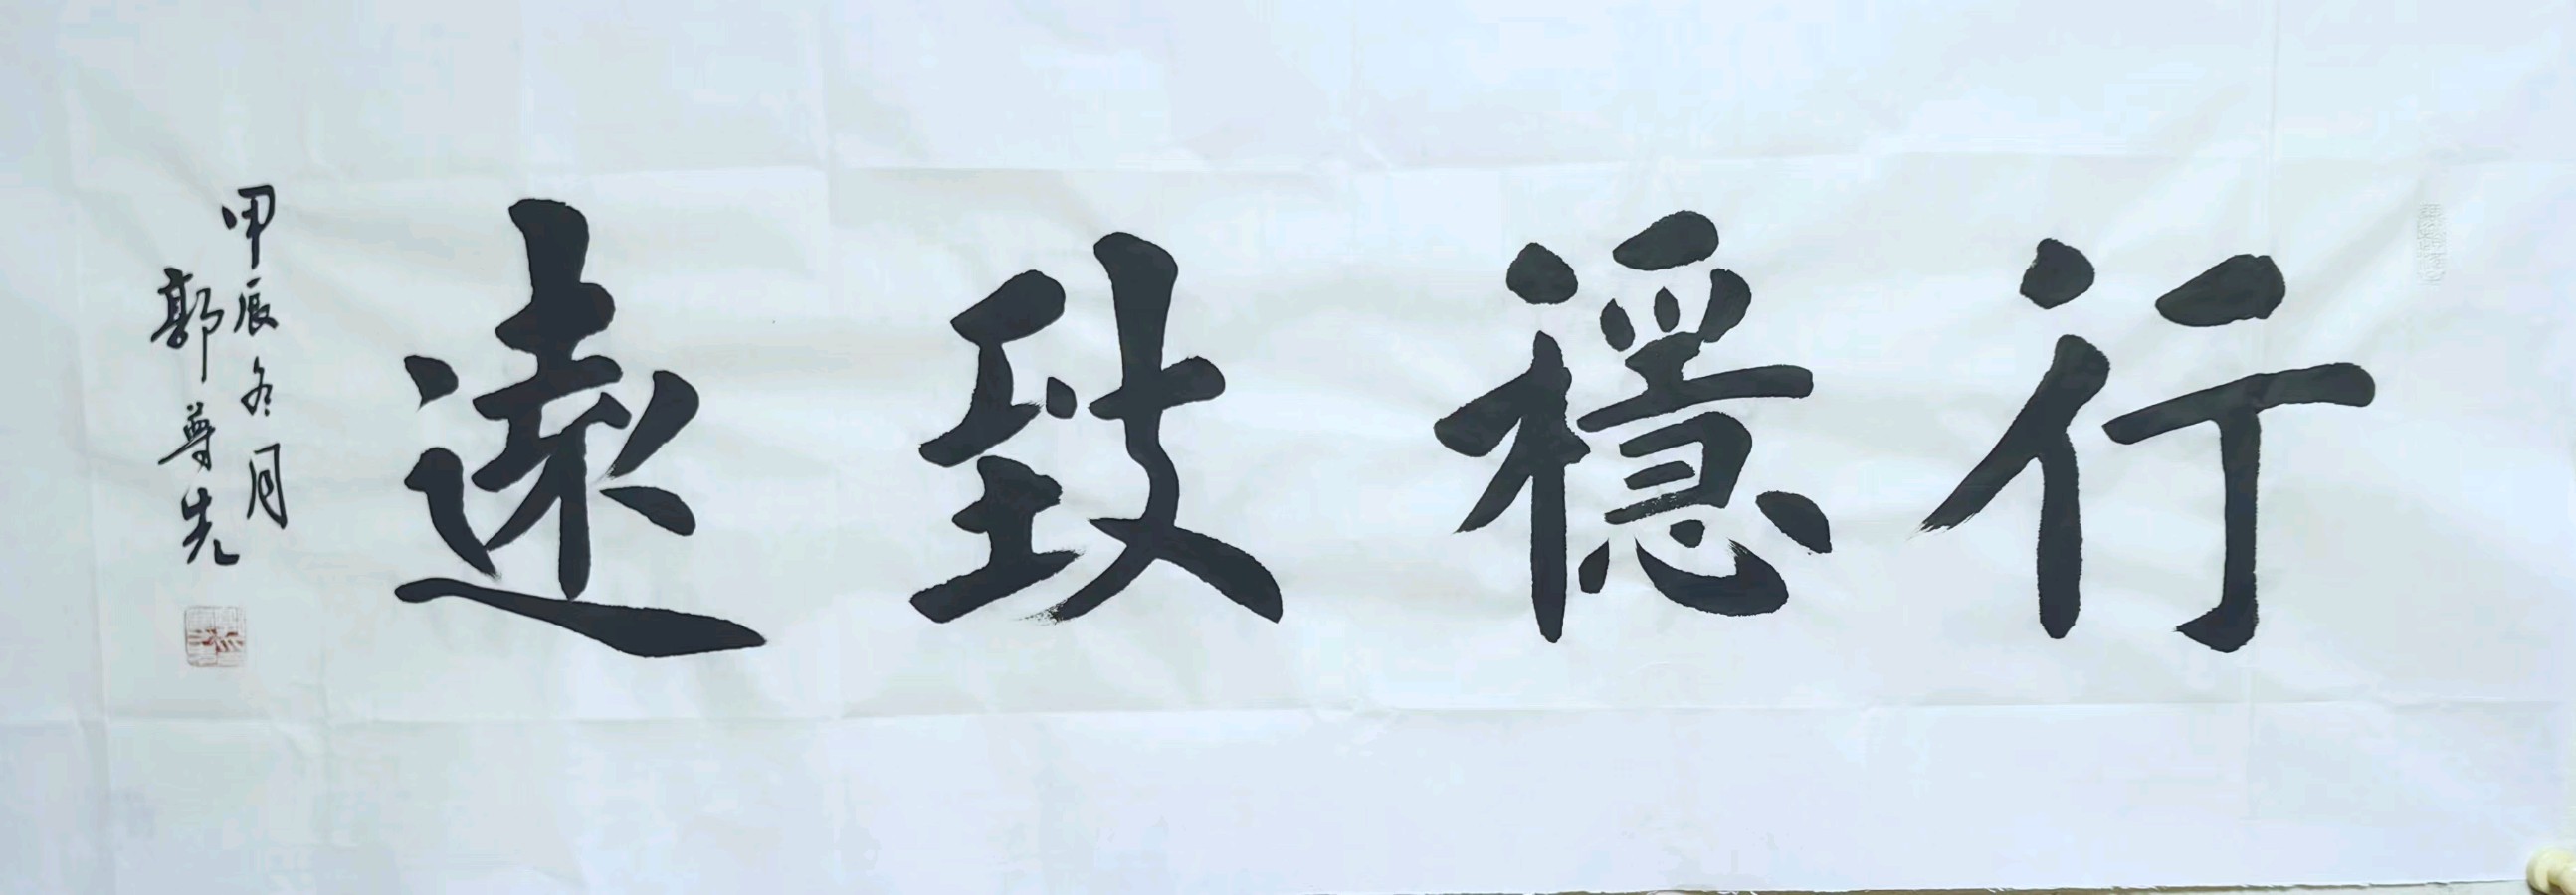 行穩致遠
甲辰冬月
郭尊先